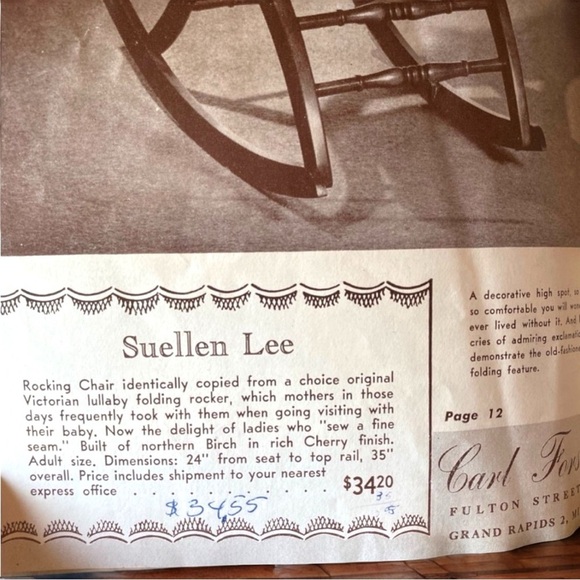 Suellen Lee
Rocking Chair identically copied from a choice original
Victorian lullaby folding rocker, which mothers in those
days frequently took with them when going visiting with
their baby. Now the delight of ladies who "sew a fine
seam." Built of northern Birch in rich Cherry finish.
Adult size. Dimensions: 24" from seat to top rail, 35"
overall. Price includes shipment to your nearest
express office . . . . . . . . . . . . $34.20
$34.55
A decorative high spot,
so comfortable you will
ever lived without it. And
cries of admiring
demonstrate the
folding feature.
Page 12
Carl
FULTON STREET
GRAND RAPIDS 2,